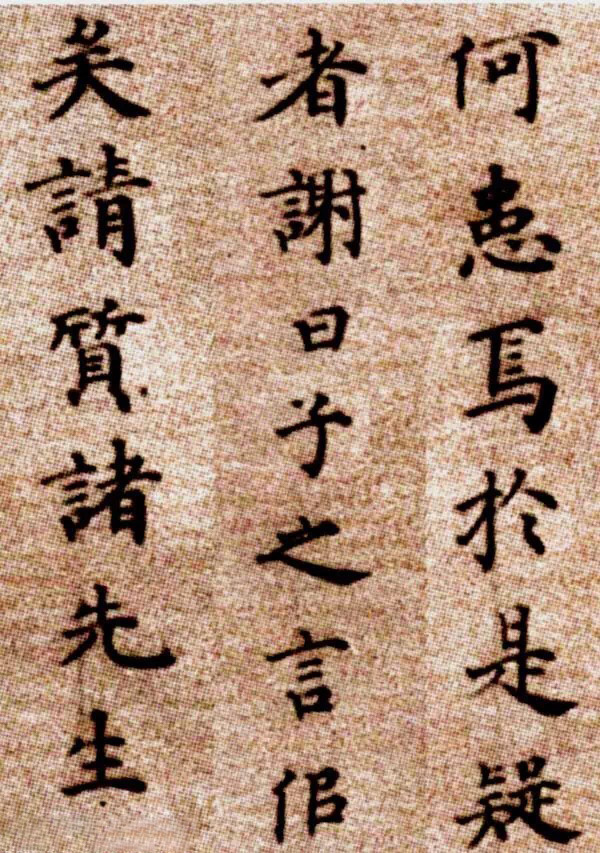 何患焉於是疑
者謝曰子之言佀
矣請質諸先生